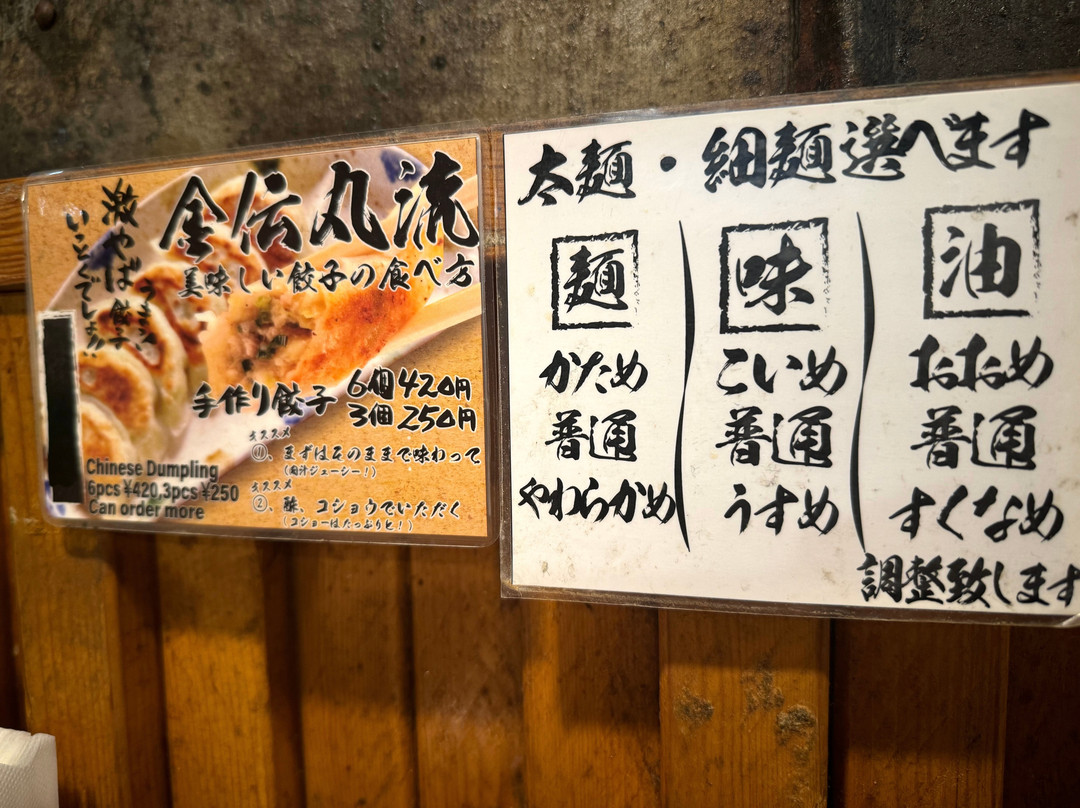 激やば餃子
いくでしょ!!
金伝丸流
美味しい餃子の食べ方
手作り餃子 6個420円
3個250円
オススメ
①、まずはそのままで味わって
(肉汁ジューシー!)
オススメ
②、酢、コショウでいただく
(コショーはたっぷりと!)
Chinese Dumpling
6pcs ¥420,3pcs ¥250
Can order more
太麺・細麺選べます
麺
かため
普通
やわらかめ
味
こいめ
普通
うすめ
油
おおめ
普通
すくなめ
調整致します